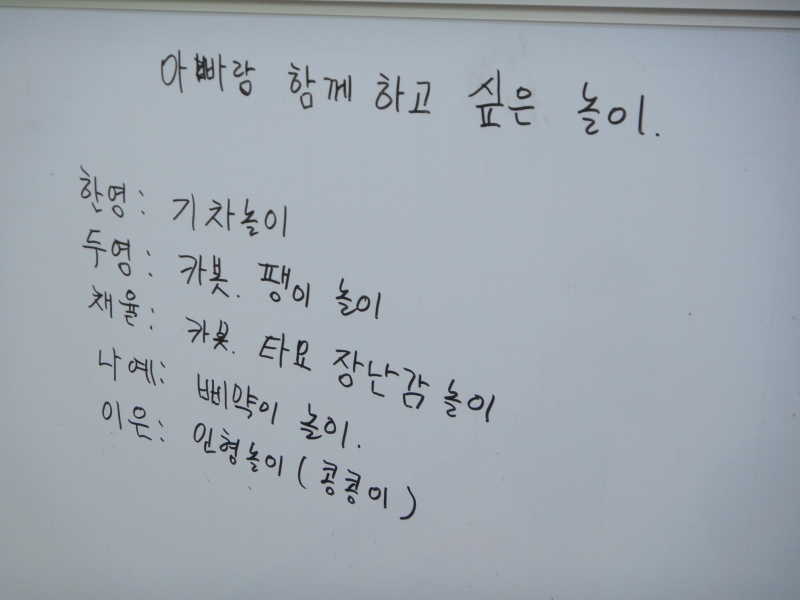 아빠랑 함께 하고 싶은 놀이.
한영: 기차놀이
두영: 카봇. 팽이 놀이
채율: 카봇. 타요 장난감 놀이
나예: 삐약이 놀이.
이은: 인형놀이 (콩콩이)